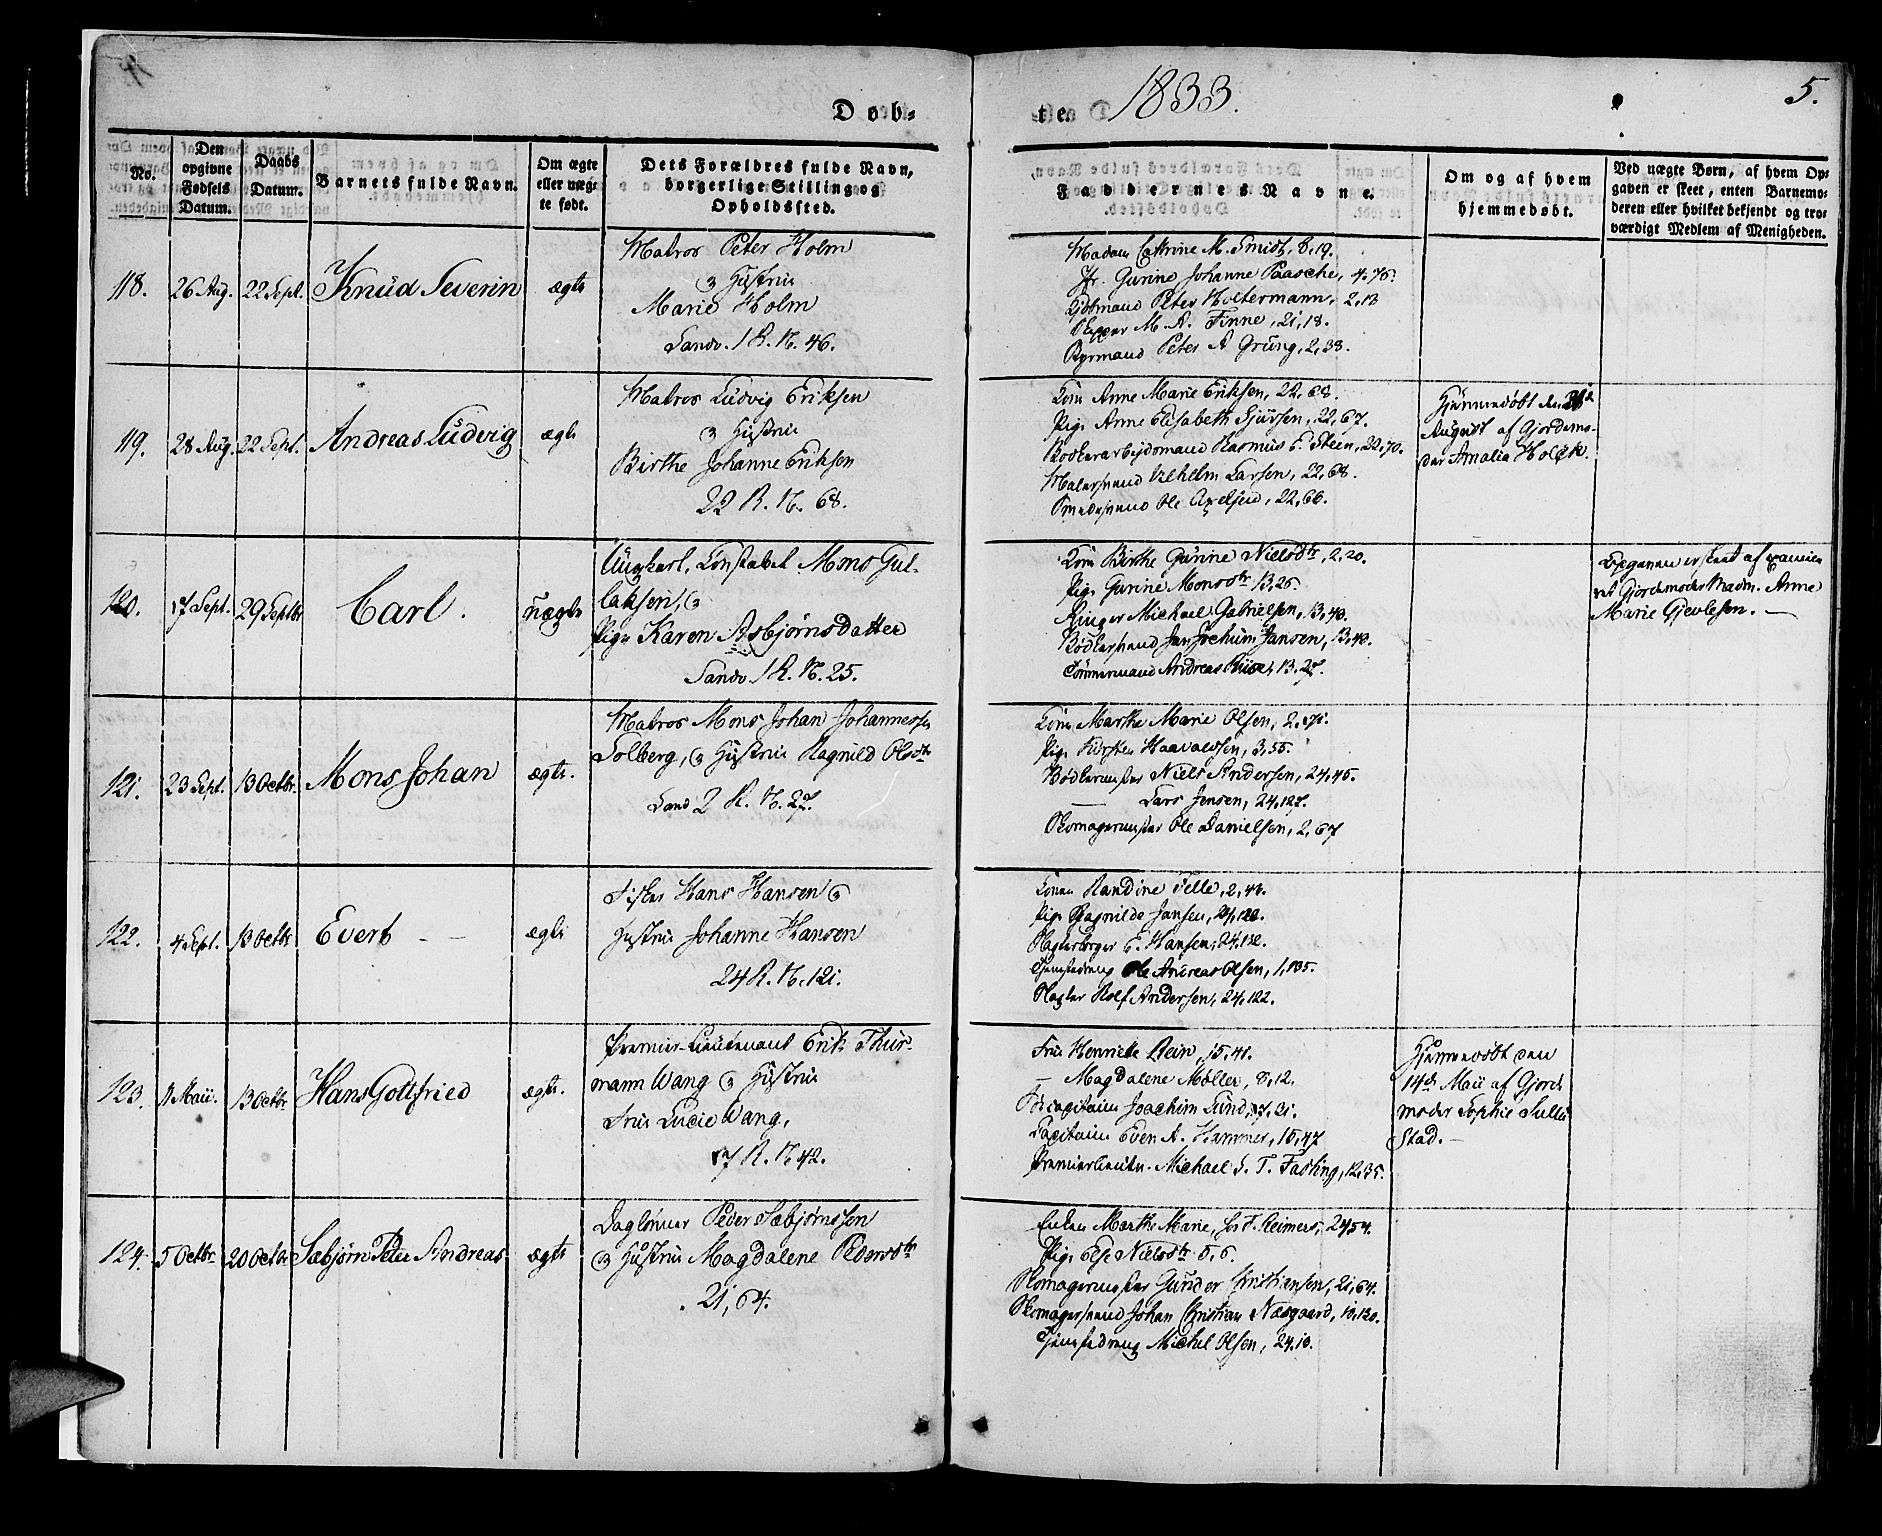 Døb-
te
1833.
5.
No.
Den
opgivne
Fødsels
Datum.
Daabs
Datum.
Barnets fulde Navn.
Om ægte
eller uæg-
te født.
Dets Forældres fulde Navn,
borgerlige Stilling og
Opholdssted.
Faddernes Navne.
Om og af hvem
hjemmedøbt.
Ved uægte Børn, af hvem Op-
gaven er skeet, enten Barnemo-
deren eller hvilket bekjendt og tro-
værdigt Medlem af Menigheden.
118.
26 Aug.
22 Sept.
Knüd Severin
ægte
Matros Peter Holm
& Hustrue
Marie Holm
Sandv. 1 R. N. 46.
Madam Cathrine M. Smidt, 8,19.
Jfr. Gurine Johanne Paasche, 4.76.
Peter Holtermann, 2,13
Skipper M. A. Finne, 21,18.
Styrmand Peter A Grüng, 2,38.
119.
28 Aug.
22 Sept.
Andreas Lüdvig
ægte
Matros Lüdvig Eriksen
& Hustrue
Birthe Johanne Eriksen
22 R. N. 68.
Kone Anne Marie Eriksen, 22,68.
Pige Anne Elisabeth Sjursen, 22,67.
Rasmus E. Steen, 22,70.
Malersvend Vilhelm Larsen, 22,68.
Smedesvend Ole Axelsen, 22,66.
Hjemmedøbt den
August af Gjordemo-
der Amalia Holck.
120.
17 Sept.
29 Septbr
Carl.
uægte
Ungkarl, Constabel Mons Gul-
laksen, &
Pige Karen Asbjørnsdatter
Sandv. 1 R. N. 25.
Kone Birthe Gürine Nielsdtr, 2,20.
Pige Gurine Monsdtr 13,25.
Ringer Michael Gabrielsen, 13,40.
Bødkersvend Jan Jochum Jansen, 13,40.
Tømmermand Andreas Riise, 13.27.
Opgaven er skeet af examine-
ret Gjordemoder Madm. Anne
Marie Gjevlesen. —
121.
23 Sept.
13 Octbr.
Mons Johan
ægte.
Matros Mons Johan Johannessen
Solberg, & Hustrue Ragnild Olsdtr
Sandv 2 R. N. 27.
Kone Marthe Marie Olsen, 2.
Pige Kirsten Haavaldsen, 3,55.
Bødkermester Niels Andersen, 24,45.
— Lars Jensen, 24,127.
Skomagermester Ole Danielsen, 2,67
122.
4 Sept.
13 Octbr
Evert — —
ægte
Fisker Hans Hansen &
Hustrue Johanne Hansen
24 R. N. 121.
Konen Randine Felle, 2,
Pige Ragnilde Jansen, 24,122.
E. Hansen, 24,132.
Tjenestedreng Ole Andreas Olsen, 1,135.
Rolf Andersen, 24,122.
123.
11 Maii.
13 Octbr.
Hans Gottfried
ægte.
Premier-Lieutenant Erik Thur-
mann Wang & Hustrue
Frue Lucie Wang,
17 R. N 42.
Frue Henriette Rein, 15,41.
— Magdalene Møller, 8,12.
Joachim Lund, 17,31.
Capitaine Even A. Hammer, 15,47
Premierlieutn. Michael S. T. Fasting, 12,35.
Hjemmedøbt den
14de Maii af Gjorde
moder Sophie Sulle
Stad. —
124.
5 Octbr
20 Octbr
Sæbjørn Peter Andreas
ægte
Dagløner Peder Sæbjørnssen
& Hustrue Magdalene Pedersdtr
21, 64.
Enken Marthe Marie, Reimers, 24,54.
Pige Else Nielsdtr 5, 6.
Skomagermester Gunder Christiansen, 21,64.
Skomagersvend Johan Christian Næsgaard, 10,130.
Tjenestedreng Michel Olsen, 24,10.